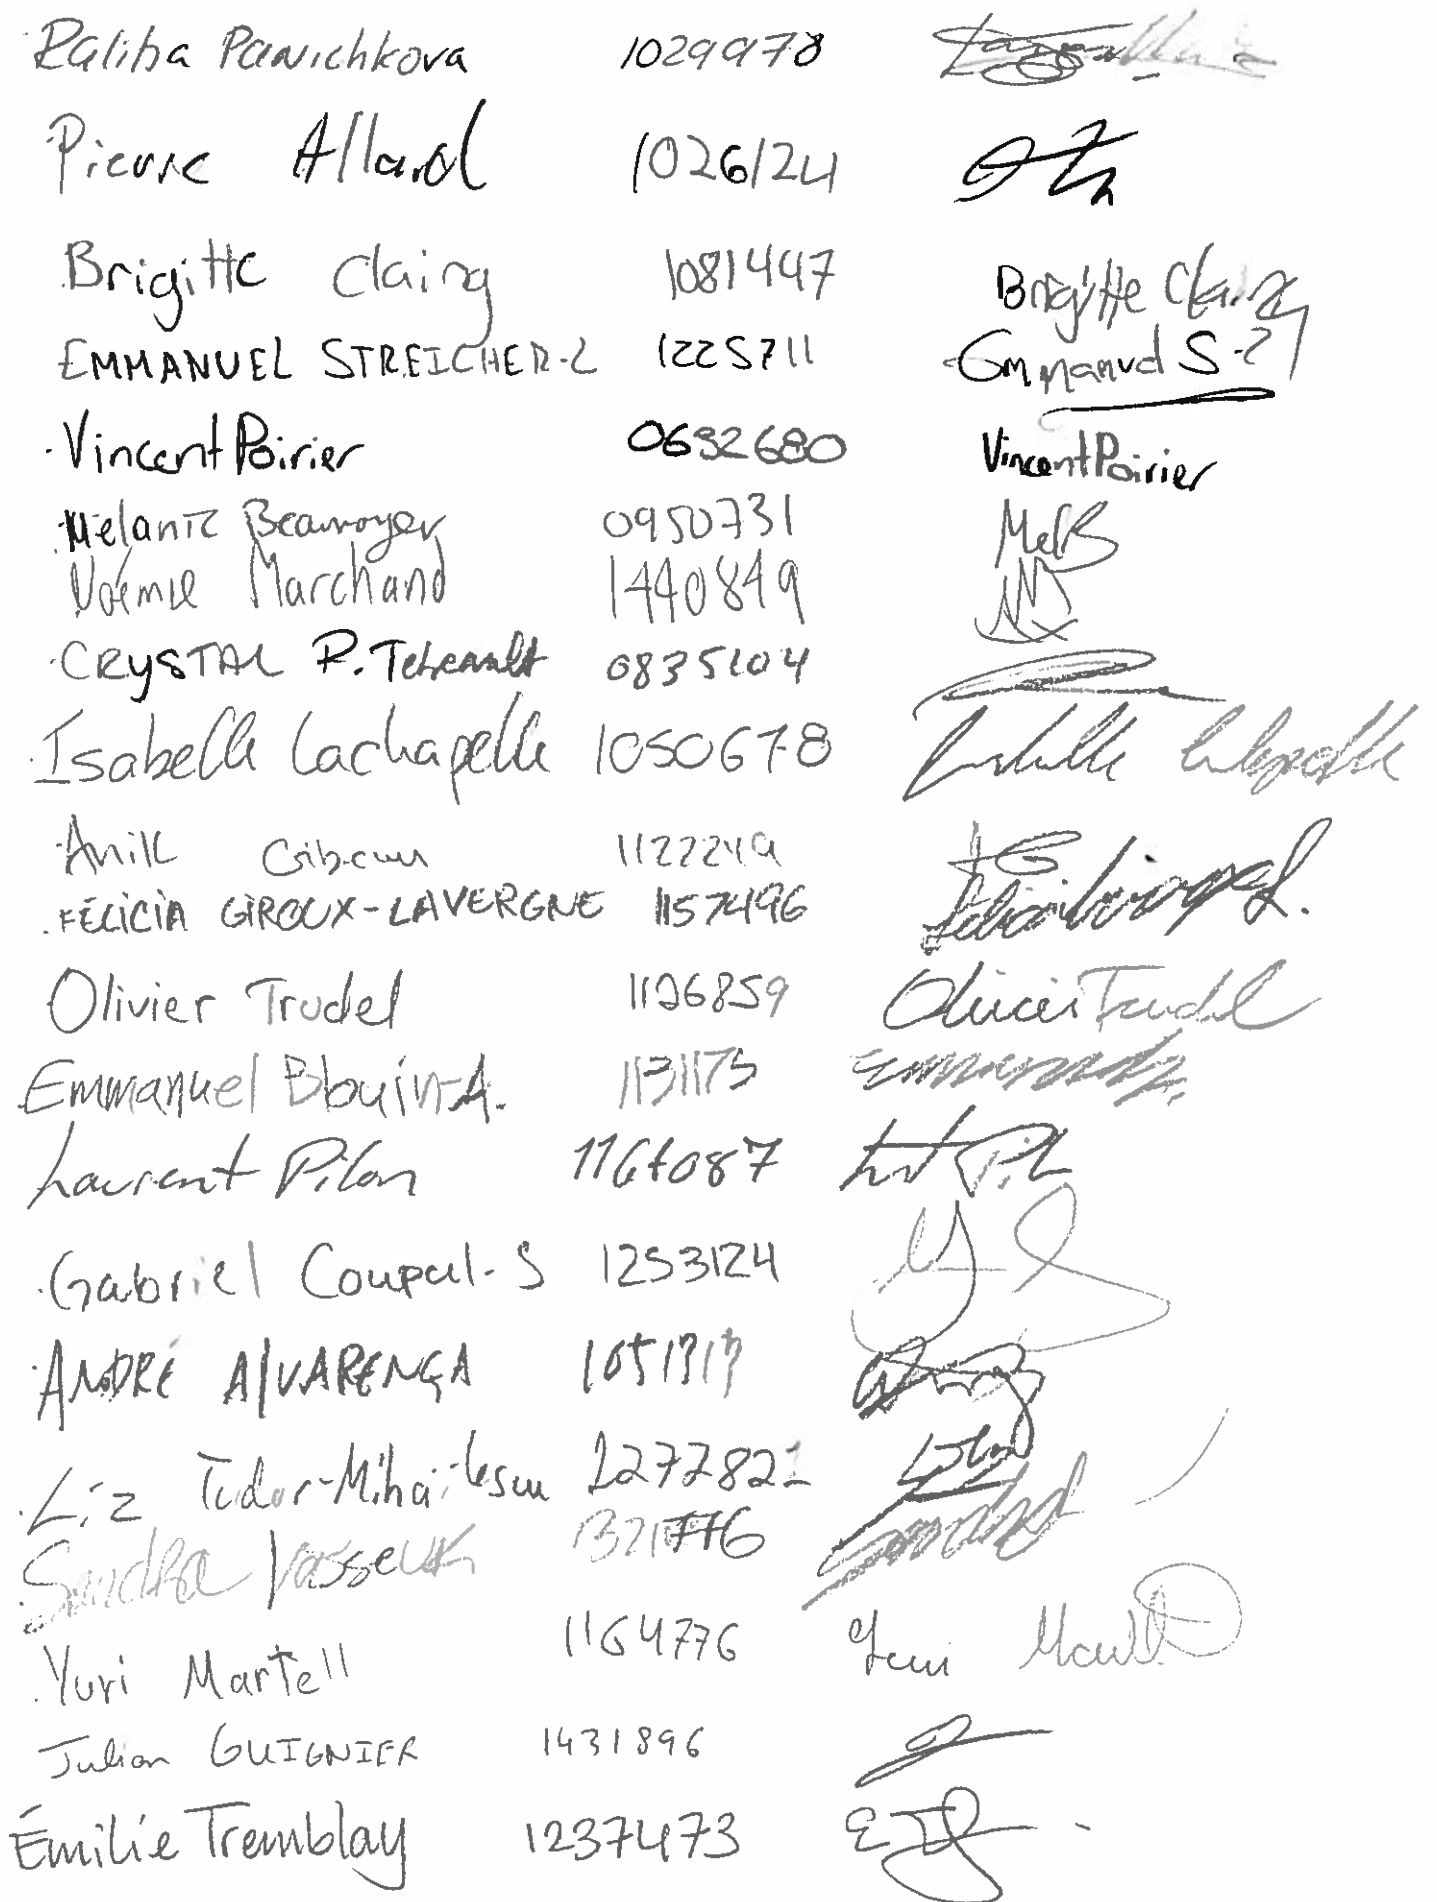 Raliba Panichkova 1029978
Pierre Allard 1026124
Brigitte Claing 1081447 Brigitte Claing
EMMANUEL STREICHER-L 1225711 Emmanuel S-L
Vincent Poirier 0632680 Vincent Poirier
Mélanie Beauvoyer 0950731 MelB
Noémie Marchand 1440849
CRYSTAL P. Tetreault 0835104
Isabelle Lachapelle 1050678 Isabelle Lachapelle
Anik Gibeau 1122249 AG
FÉLICIA GIROUX-LAVERGNE 1157496
Olivier Trudel 1126859 Olivier Trudel
Emmanuel Blouin-A. 1131175
Laurent Pilon 1164087
Gabriel Coupal-S 1253124
ANDRÉ ALVARENGA
Liz Tudor-Mihailescu 1277821
Sandra Vasseur 1321776 Sandra
Yuri Martell 1164776 Yuri Martell
Julian GUIGNIER 1431896
Émilie Tremblay 1237473 ET